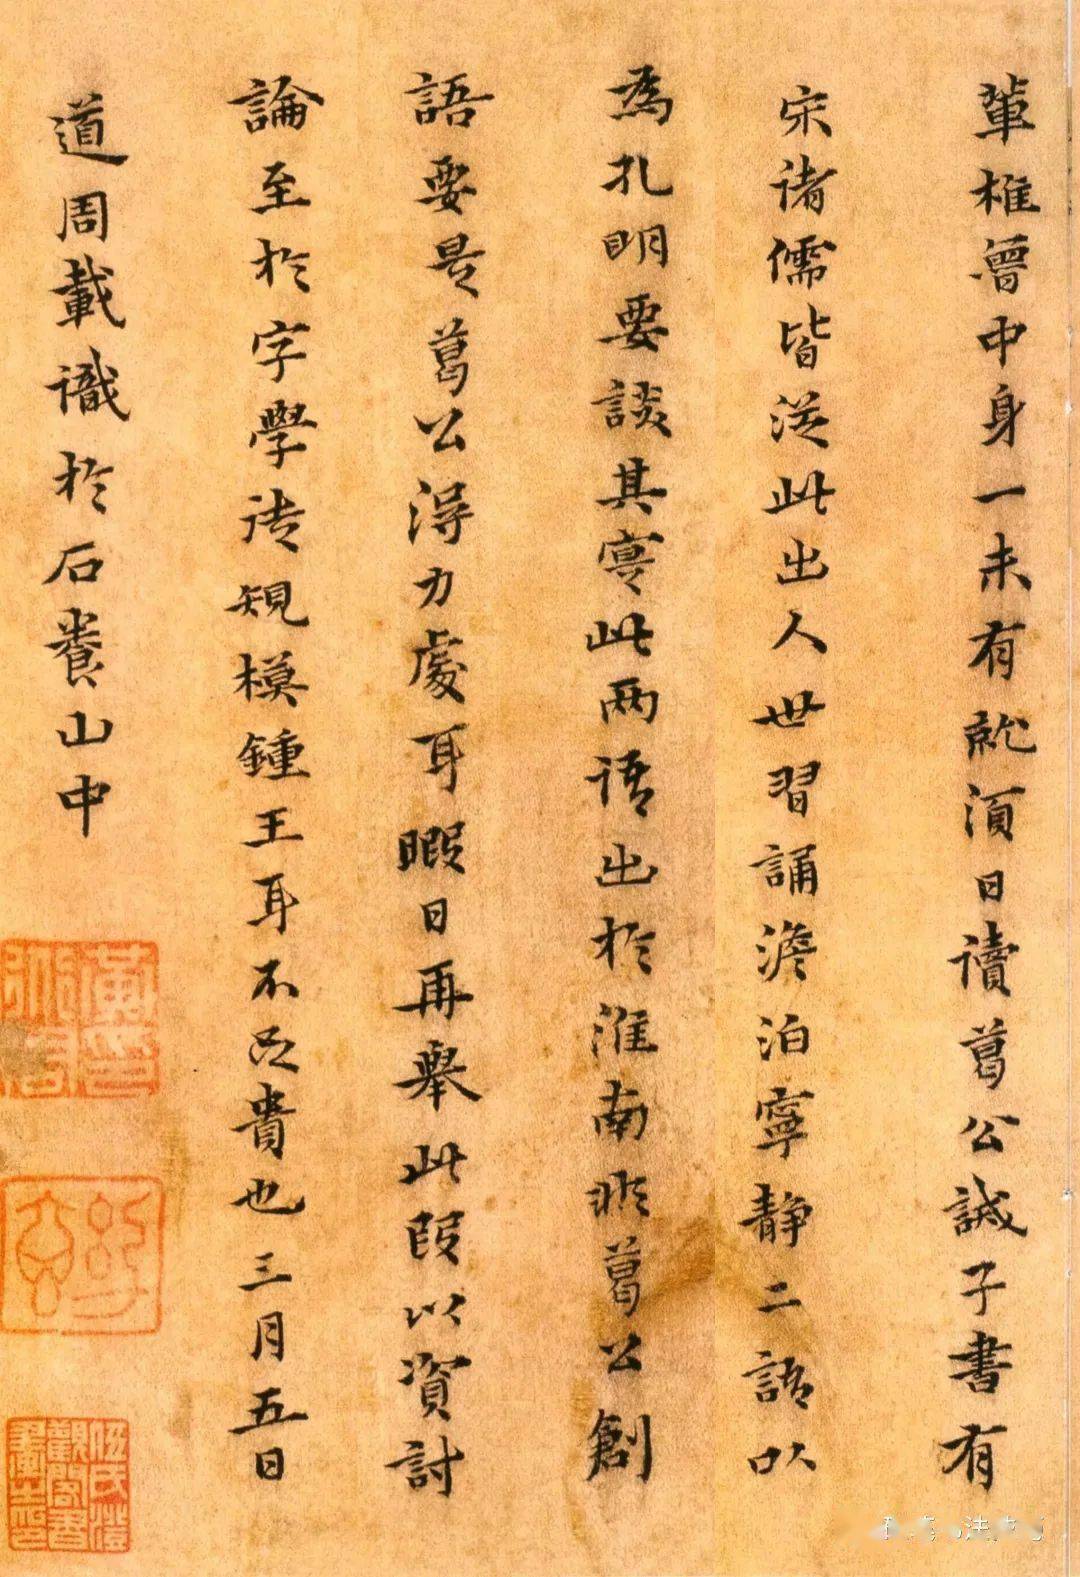 輩惟曾中身一未有就須日讀葛公誡子書有
宋诸儒皆從此出人世習誦澹泊寧静二語以
為孔明要談其實此兩语出於淮南非葛公創
語要是葛公得力處耳暇日再舉此段以資討
論至於字學法規模鍾王耳不足貴也三月五日
道周載識於石養山中
伍氏澄觀閣書畫之印